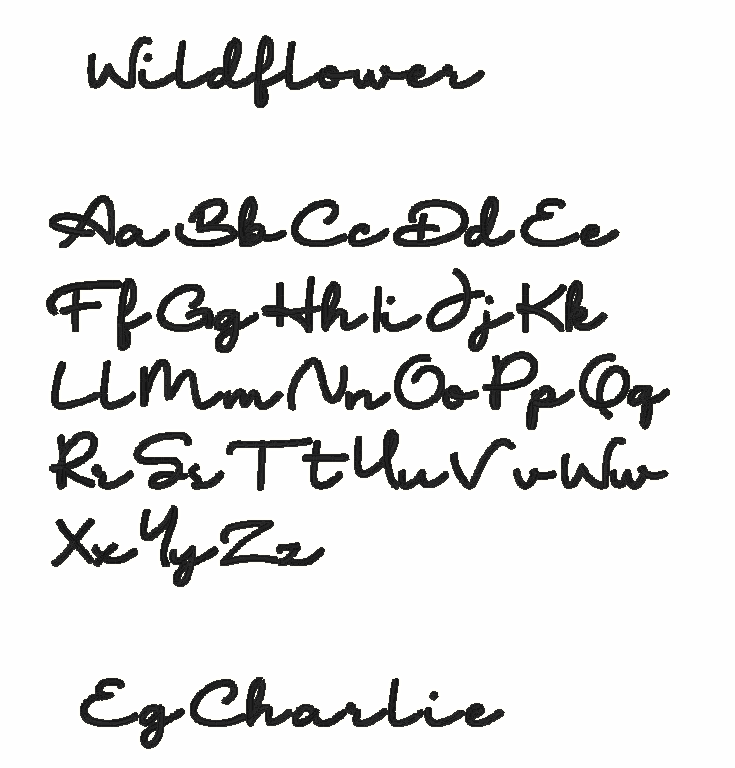 Wildflower
Aa Bb Cc Dd Ee
Ff Gg Hh Ii Jj Kk
Ll Mm Nn Oo Pp Qq
Rr Ss Tt Uu Vv Ww
Xx Yy Zz
Eg Charlie